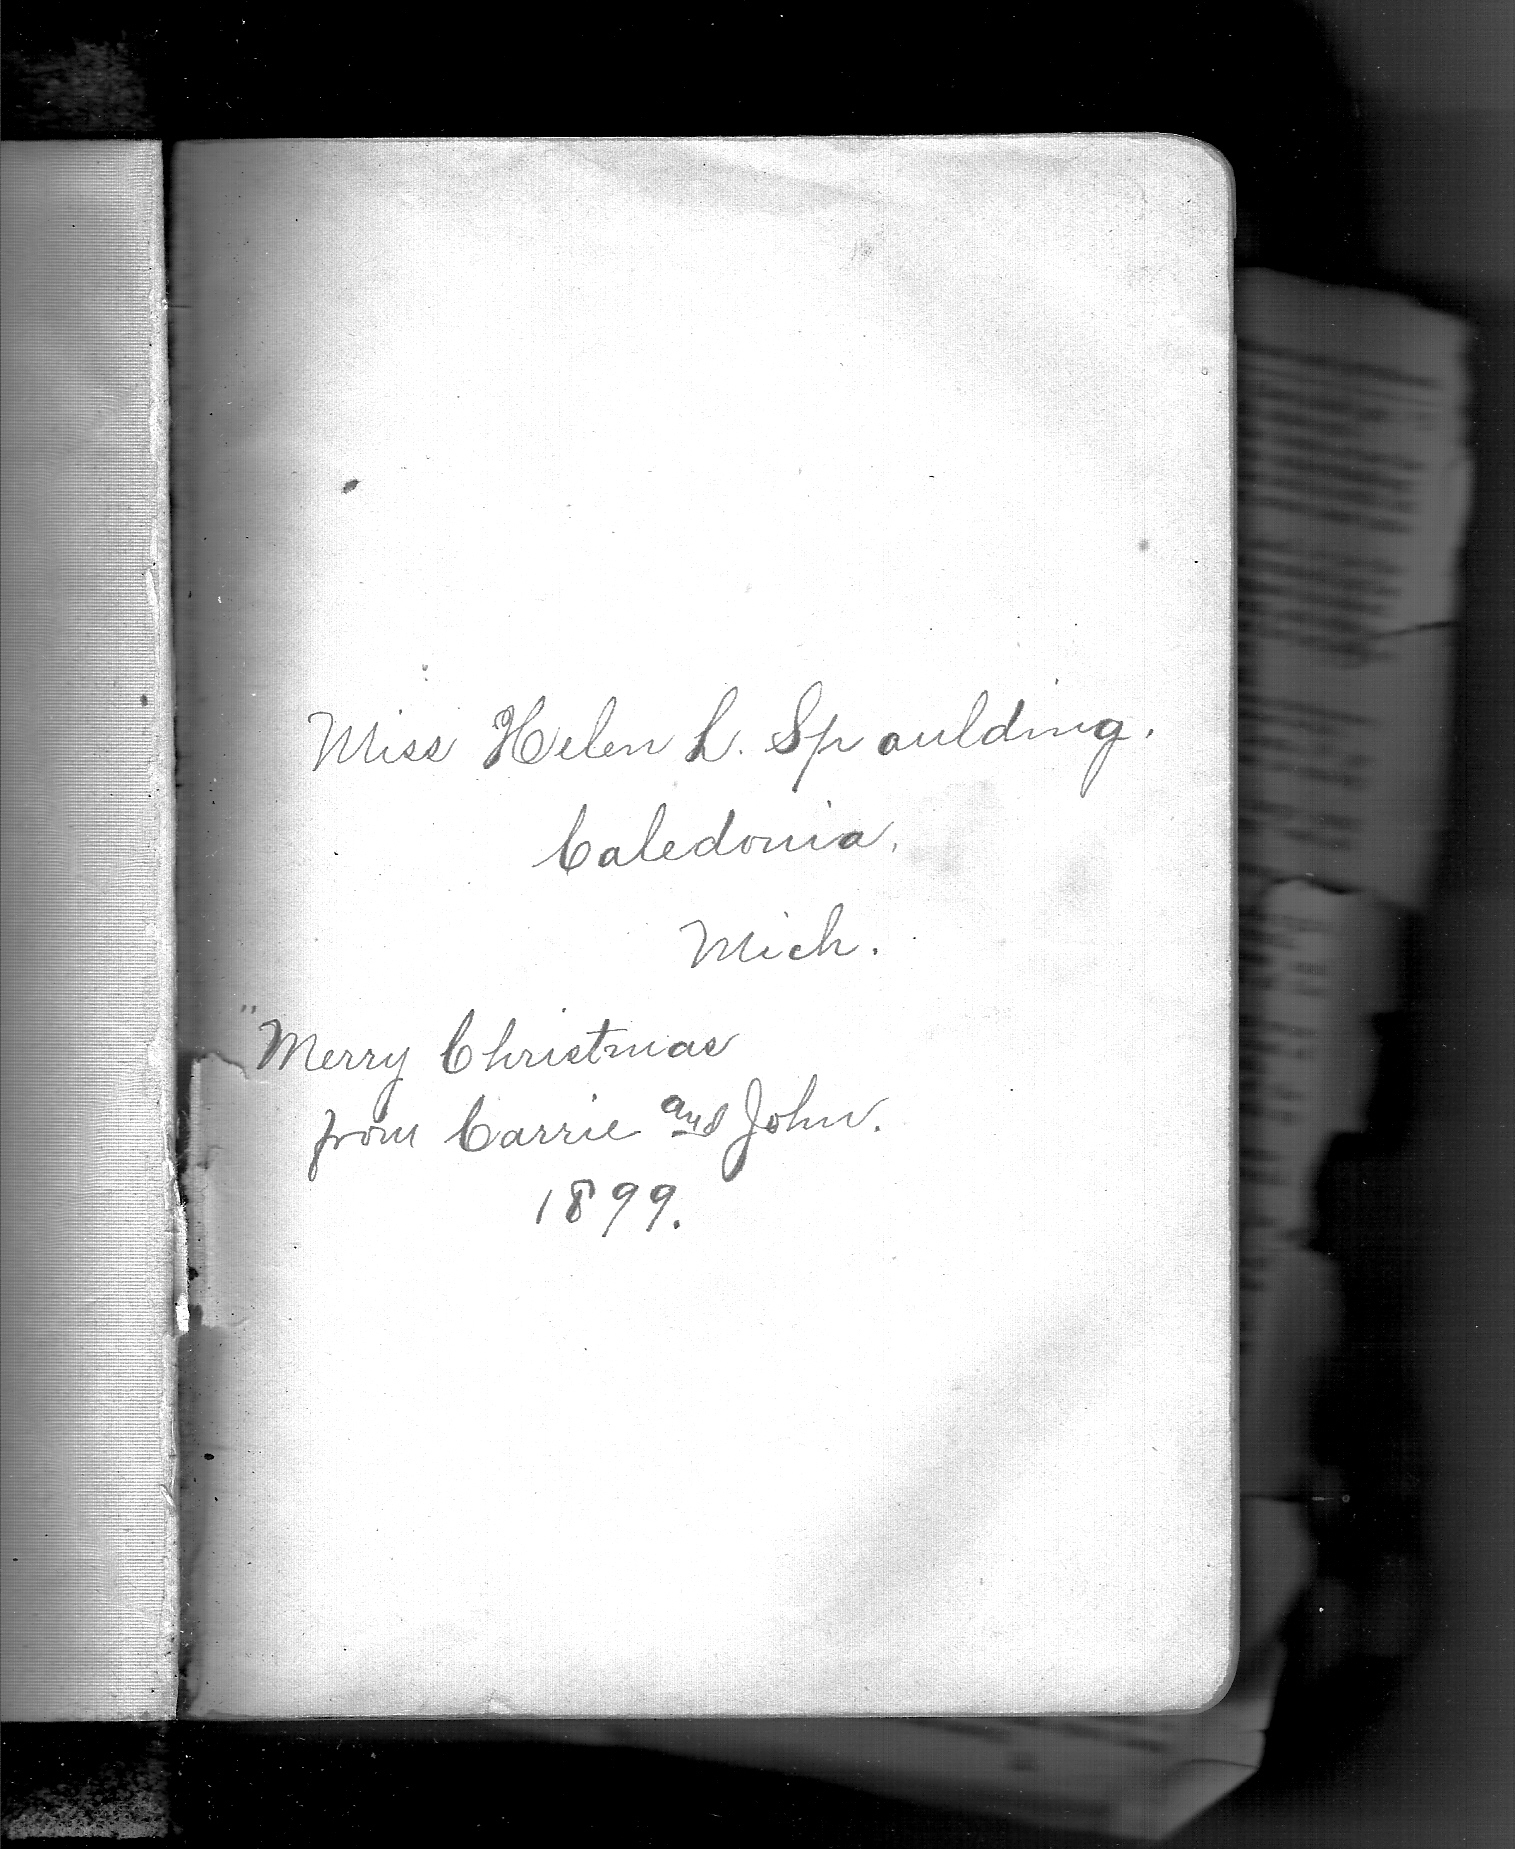 Miss Helen L. Spaulding.
Caledonia.
Mich.
"Merry Christmas
from Carrie and John.
1899.